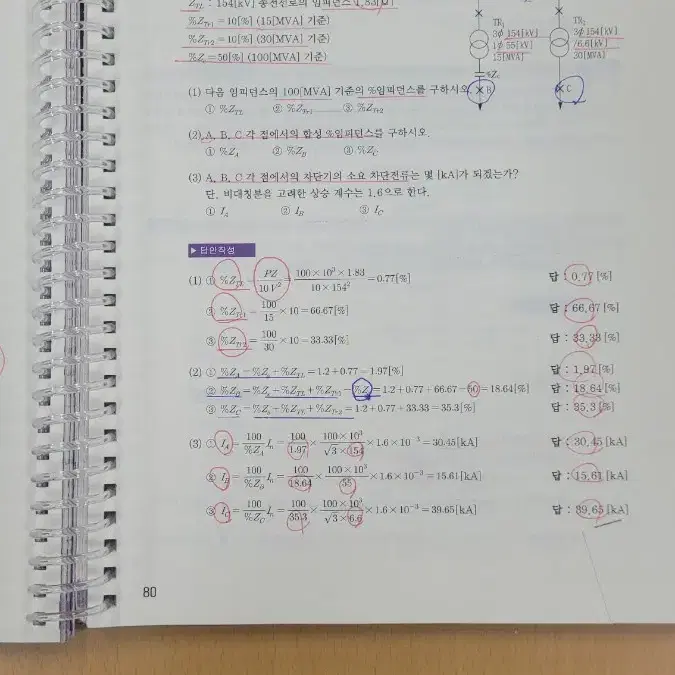 Z_TL : 154[kV] 송전선로의 임피던스 1.83[Ω]
%Z_Tr1 = 10[%] (15[MVA] 기준)
%Z_Tr2 = 10[%] (30[MVA] 기준)
%Z_c = 50[%] (100[MVA] 기준)
3φ 154[kV]
1φ 55[kV]
15[MVA]
%Z_c
B
TR₂
3φ 154[kV]
/6.6[kV]
30[MVA]
C
(1) 다음 임피던스의 100[MVA] 기준의 %임피던스를 구하시오.
① %Z_TL ② %Z_Tr1 ③ %Z_Tr2
(2) A, B, C 각 점에서의 합성 %임피던스를 구하시오.
① %Z_A ② %Z_B ③ %Z_C
(3) A, B, C 각 점에서의 차단기의 소요 차단전류는 몇 [kA]가 되겠는가?
단, 비대칭분을 고려한 상승 계수는 1.6으로 한다.
① I_A ② I_B ③ I_C
▶ 답안작성
(1) ① %Z_TL = PZ/10V² = 100×10³×1.83/10×154² = 0.77[%] 답 : 0.77[%]
② %Z_Tr1 = 100/15 × 10 = 66.67[%] 답 : 66.67[%]
③ %Z_Tr2 = 100/30 × 10 = 33.33[%] 답 : 33.33[%]
(2) ① %Z_A = %Z_s + %Z_TL = 1.2 + 0.77 = 1.97[%] 답 : 1.97[%]
② %Z_B = %Z_s + %Z_TL + %Z_Tr1 − %Z_c = 1.2 + 0.77 + 66.67 − 50 = 18.64[%] 답 : 18.64[%]
③ %Z_C = %Z_s + %Z_TL + %Z_Tr2 = 1.2 + 0.77 + 33.33 = 35.3[%] 답 : 35.3[%]
(3) ① I_A = 100/%Z_A I_n = 100/1.97 × 100×10³/√3×154 × 1.6×10⁻³ = 30.45[kA] 답 : 30.45[kA]
② I_B = 100/%Z_B I_n = 100/18.64 × 100×10³/55 × 1.6×10⁻³ = 15.61[kA] 답 : 15.61[kA]
③ I_C = 100/%Z_C I_n = 100/35.3 × 100×10³/√3×6.6 × 1.6×10⁻³ = 39.65[kA] 답 : 39.65[kA]
80